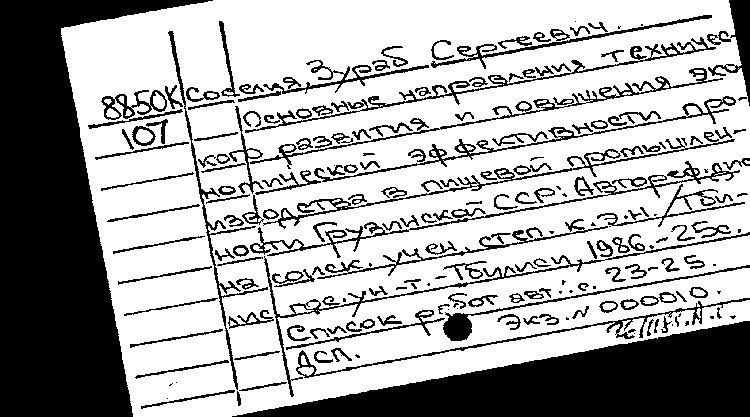 8850К Соселия, Зураб Сергеевич.
107 Основные направления техничес-
кого развития и повышения эко-
номической эффективности про-
изводства в пищевой промышлен-
ности Грузинской ССР: Автореф. дис
на соиск. учен. степ. к.э.н. / Тби-
лис гос. ун-т. - Тбилиси, 1986. - 25с.
Список работ авт.: с. 23-25.
Экз. N 000010.
ДСП.